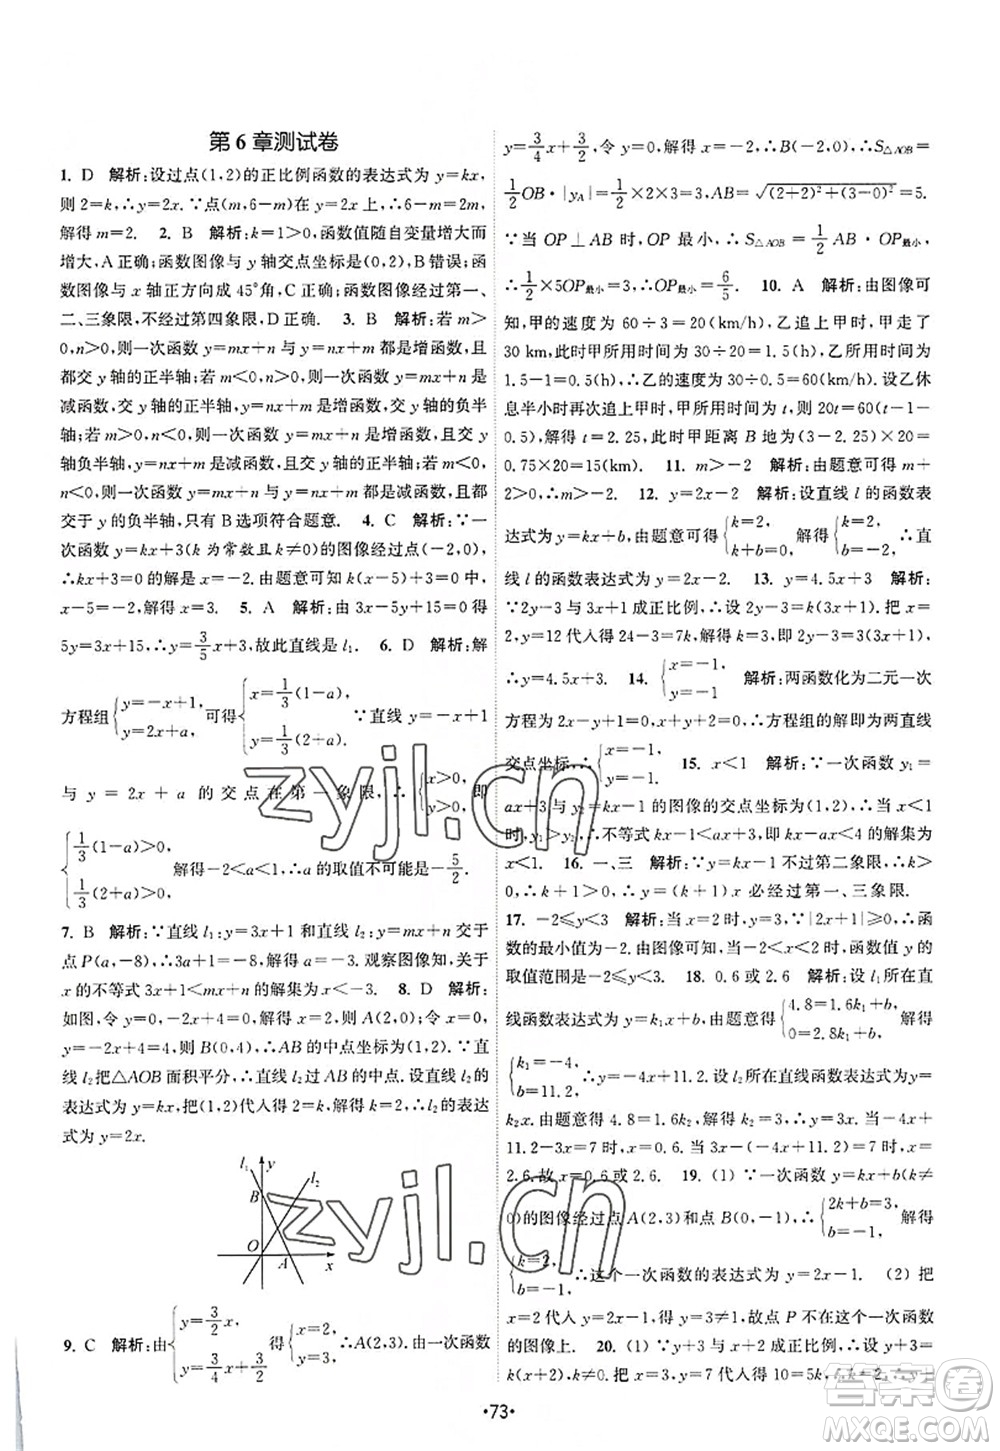 第 6 章测试卷
1. D 解析:设过点(1,2)的正比例函数的表达式为 y=kx,
则 2=k,∴y=2x.∵点(m,6-m)在直线上,∴6-m=2m,
解得 m=2. 2. B 解析:k=1>0,函数值随自变量增大而
增大,A 正确;函数图像与 y 轴交点坐标是(0,2),B 错误;函
数图像与 x 轴正方向成 45°角,C 正确;函数图像经过第一、
二、三象限,不经过第四象限,D 正确. 3. B 解析:若 m>
0,n>0,则一次函数 y=mx+n 与 y=nx+m 都是增函数,且
都交 y 轴的正半轴;若 m<0,n>0,则一次函数 y=mx+n 是
减函数,交 y 轴的正半轴,y=nx+m 是增函数,交 y 轴的负半
轴;若 m>0,n<0,则一次函数 y=mx+n 是增函数,交 y
轴负半轴,y=nx+m 是减函数,交 y 轴的正半轴;若 m<0,
n<0,则一次函数 y=mx+n 与 y=nx+m 都是减函数,且都
交于 y 轴的负半轴,只有 B 选项符合题意. 4. C 解析:∵一
次函数 y=kx+3(k 为常数且 k≠0)的图像经过点(-2,0),
∴kx+3=0 的解是 x=-2. 由题意可知 k(x-5)+3=0,
∴x-5=-2,解得 x=3. 5. A 解析:由 3x-5y+15=0 得
5y=3x+15,∴y=3/5x+3,故此直线是 l₁. 6. D 解析:解
方程组{y=-x+1, y=2x+a,可得{x=1/3(1-a), y=1/3(2+a). ∵直线 y=-x+1
与 y=2x+a 的交点在第一象限,∴{x>0, y>0, 即
{1/3(1-a)>0, 1/3(2+a)>0, 解得-2<a<1. ∴a 的取值不可能是-5/2.
7. B 解析:∵直线 l₁:y=3x+1 和直线 l₂:y=mx+n 交于
点 P(a,-8),∴3a+1=-8,解得 a=-3. 观察图像知,关于
x 的不等式 3x+1<mx+n 的解集为 x<-3. 8. D 解析:
如图,令 y=0,-2x+4=0,解得 x=2,则 A(2,0);令 x=0,
y=-2x+4=4,则 B(0,4),∴AB 的中点坐标为(1,2).∵直
线 l₂ 把△AOB 面积平分,∴直线 l₂ 过 AB 的中点. 设直线 l₂
的表达式为 y=kx,把(1,2)代入得 2=k,解得 k=2,∴l₂ 的表达
式为 y=2x.
l₁ y l₂
B
O A x
9. C 解析:由{y=3/2x, y=3/4x+3/2 得{x=2, y=3, ∴A(2,3). 由一次函数
y=3/4x+3/2,令 y=0,解得 x=-2,∴B(-2,0),∴S△AOB=
1/2OB·|yA|=1/2×2×3=3,AB=√((2+2)²+(3-0)²)=5.
∵当 OP⊥AB 时,OP 最小,∴S△AOB=1/2AB·OP最小,
∴1/2×5OP最小=3,∴OP最小=6/5. 10. A 解析:由图像可
知,甲的速度为 60÷3=20(km/h),乙追上甲时,甲走了
30 km,此时甲所用时间为 30÷20=1.5(h),乙所用时间为
1.5-1=0.5(h),∴乙的速度为 30÷0.5=60(km/h). 设乙休
息半小时再次追上甲时,甲所用时间为 t,则 20t=60(t-1-
0.5),解得 t=2.25,此时甲距离 B 地为(3-2.25)×20=
0.75×20=15(km). 11. m>-2 解析:由题意可得 m+
2>0,∴m>-2. 12. y=2x-2 解析:设直线 l 的函数表
达式为 y=kx+b,由题意可得{2k+b=2, b=-2, 解得{k=2, b=-2, ∴直
线 l 的函数表达式为 y=2x-2. 13. y=4.5x+3 解析:
∵2y-6 与 3x 成正比例,∴设 2y-6 与 3x 的关系式为 2y-6=3kx. 把 x=
2,y=12 代入得 24-6=6k,解得 k=3,
∴y=4.5x+3. 14. {x=-1, y=-1 解析:两函数化为二元一次
方程为 2x-y+1=0,x-y=0,∴方程组的解即为两直线
交点坐标,∴{x=-1, y=-1. 15. x<1 解析:∵一次函数 y₁=
ax+3 与 y₂=kx-1 的图像的交点坐标为(1,2),∴当 x<1
时,y₁>y₂,∴不等式 kx-1<ax+3 的解集为
x<1. 16. 一、三 解析:∵y=kx-k 不过第二象限,∴k>
0,∴k+1>0,∴y=(k+1)x 必经过第一、三象限.
17. -2≤y<3 解析:当 x=2 时,y=3,∵|x+1|≥0,∴函
数的最小值为-2. 由图像可知,当-2<x<2 时,函数值 y 的
取值范围是-2≤y<3. 18. 0.6 或 2.6 解析:设 l₁ 所在直
线函数表达式为 y=k₁x+b,由题意可得{4.8=1.6k₁+b, 0=2.8k₁+b, 解得
{k₁=-4, b=11.2, ∴y=-4x+11.2. 设 l₂ 所在直线函数表达式为 y=
k₂x. 由题意得 4.8=1.6k₂,解得 k₂=3,∴y=3x. 当-4x+
11.2-3x=7 时,x=0.6;当 3x-(-4x+11.2)=7 时,x=
2.6. 故 x=0.6 或 2.6. 19. (1) ∵一次函数 y=kx+b(k≠
0)的图像经过点 A(2,3)和点 B(0,-1),∴{2k+b=3, b=-1, 解得
{k=2, b=-1, ∴这个一次函数的表达式为 y=2x-1. (2) 把
x=2 代入 y=2x-1,解得 y=3,y=3≠1,故点 P 不在该函数
的图像上. 20. (1) ∵y+3 与 x+2 成正比例,∴设 y+3=
k(x+2)(k≠0). 把 x=3,y=7 代入得 10=5k,解得 k=2,
·73·
zyjl.cn
zyjl.cn
答案圈
MXQE.COM